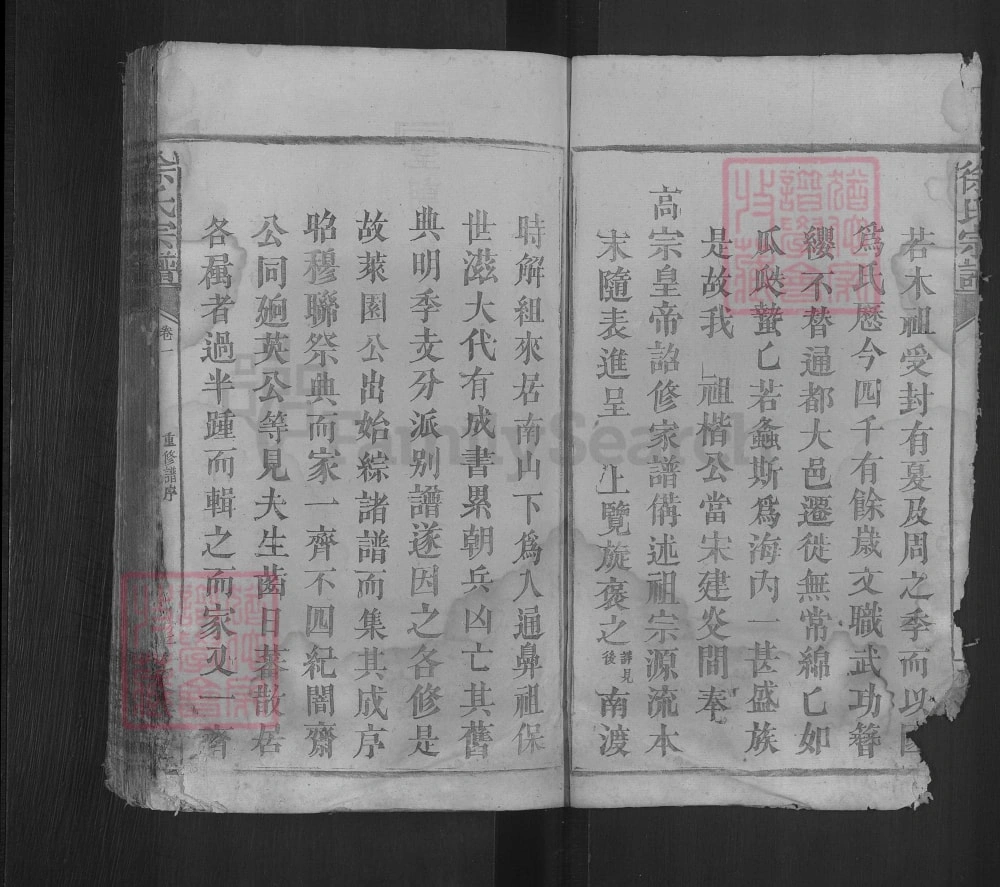 徐氏宗譜
若木祖受封有夏及周之季而以國
爲氏歷今四千有餘歲文職武功簪
纓不替通都大邑遷徙無常綿乚如
瓜瓞蟄乚若螽斯爲海内一甚盛族
是故我 祖楷公當宋建炎間奉
高宗皇帝詔修家譜備述祖宗源流本
末隨表進呈 上覽旋褒之詳見後南渡
時解組來居南山下爲入通鼻祖保
世滋大代有成書累朝兵凶亡其舊
典明季支分派别譜遂因之各修是
故萊園公出始綜諸譜而集其成序
昭穆聯祭典而家一齊不四紀闇齋
公同廸英公等見夫生齒日蕃散居
各屬者過半踵而輯之而家又一齊
徐氏宗譜
卷一
重修譜序
FamilySearch